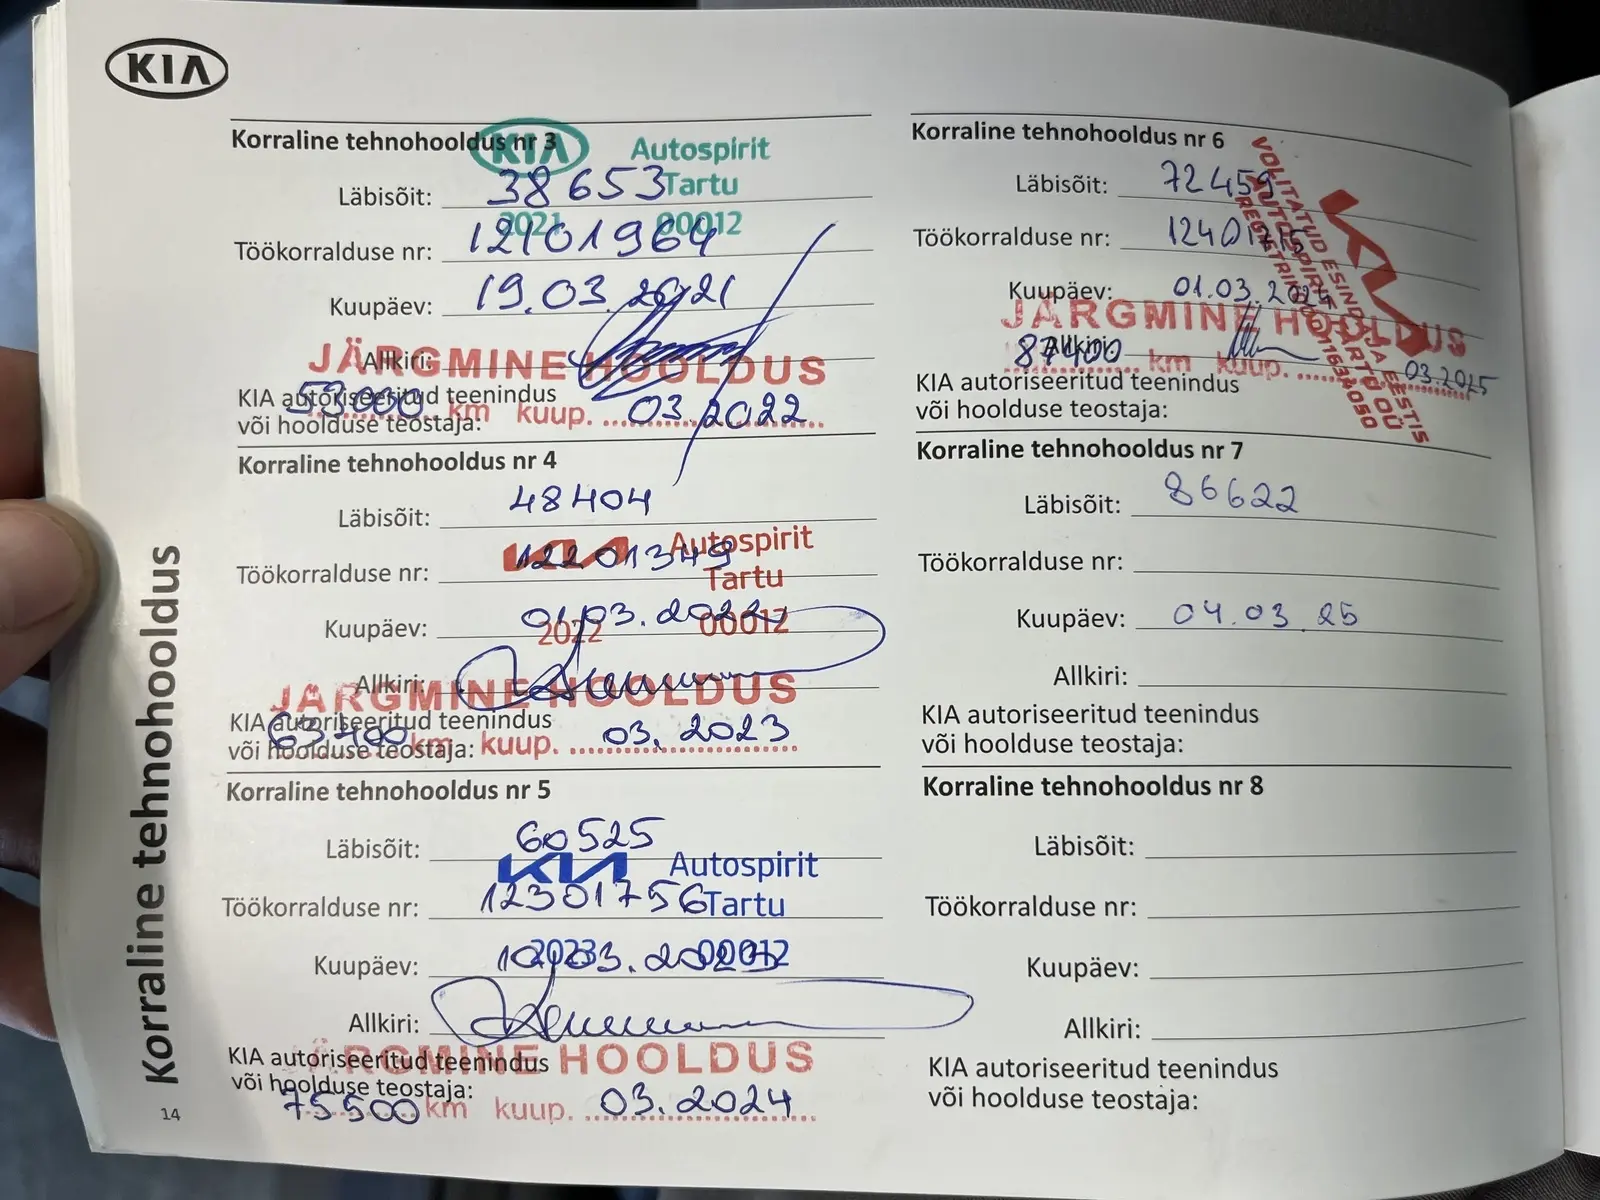 KIA
Korraline tehnohooldus nr 3
KIA Autospirit
Tartu
2021 00012
Läbisõit: 38653
Töökorralduse nr: 12101964
Kuupäev: 19.03.2021
Allkiri:
JÄRGMINE HOOLDUS
KIA autoriseeritud teenindus
või hoolduse teostaja:
53.000 km kuup. 03.2022
Korraline tehnohooldus nr 4
Läbisõit: 48404
KIA Autospirit
Tartu
2022 00012
Töökorralduse nr: 12201349
Kuupäev: 01.03.2022
Allkiri:
JÄRGMINE HOOLDUS
KIA autoriseeritud teenindus
või hoolduse teostaja:
63.400 km kuup. 03. 2023
Korraline tehnohooldus nr 5
Läbisõit: 60525
KIA Autospirit
Tartu
2023 00012
Töökorralduse nr: 12301756
Kuupäev: 10.03.2023
Allkiri:
JÄRGMINE HOOLDUS
KIA autoriseeritud teenindus
või hoolduse teostaja:
75500 km kuup. 03.2024
14
Korraline tehnohooldus
Korraline tehnohooldus nr 6
Läbisõit: 72459
Töökorralduse nr: 12401715
Kuupäev: 01.03.2024
KIA
VOLITATUD ESINDAJA EESTIS
AUTOSPIRIT TARTU OÜ
Allkiri:
JÄRGMINE HOOLDUS
87400 km kuup. 03.2025
KIA autoriseeritud teenindus
või hoolduse teostaja:
Korraline tehnohooldus nr 7
Läbisõit: 86622
Töökorralduse nr:
Kuupäev: 04.03.25
Allkiri:
KIA autoriseeritud teenindus
või hoolduse teostaja:
Korraline tehnohooldus nr 8
Läbisõit:
Töökorralduse nr:
Kuupäev:
Allkiri:
KIA autoriseeritud teenindus
või hoolduse teostaja: